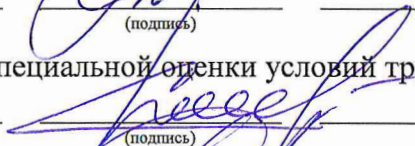 (подпись)
пециальной оценки условий тр
(подпись)